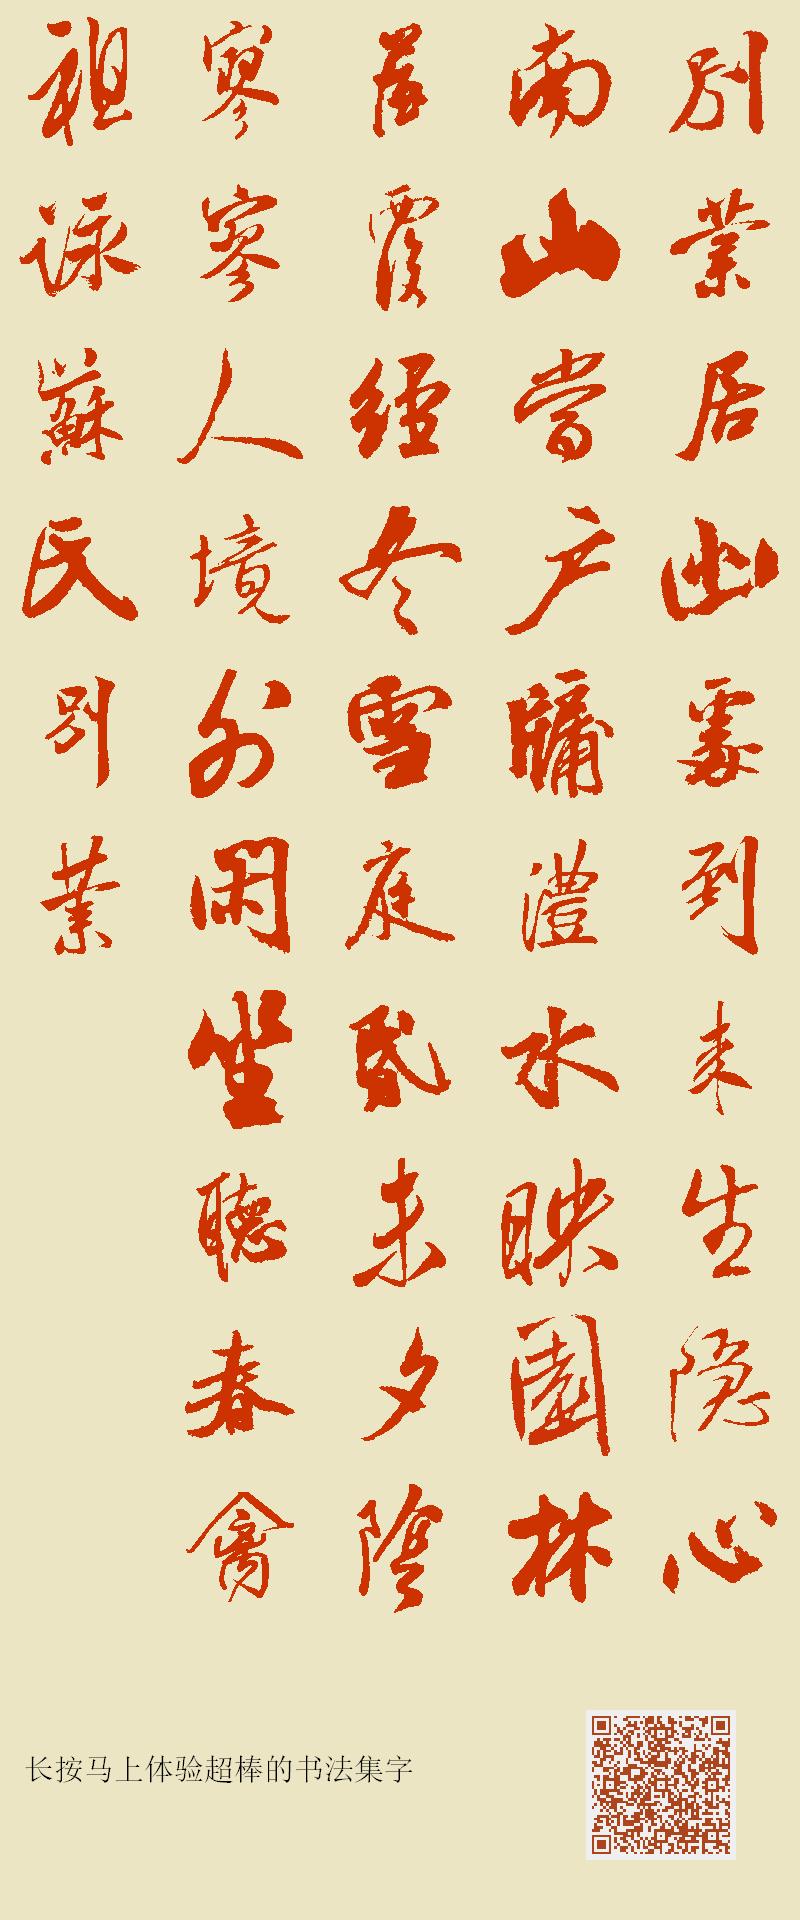 別業居幽處到来生隐心
南山當户牖澧水映園林
屋覆經冬雪庭昏未夕陰
寥寥人境外閑坐聽春禽
祖詠蘇氏別業
长按马上体验超棒的书法集字